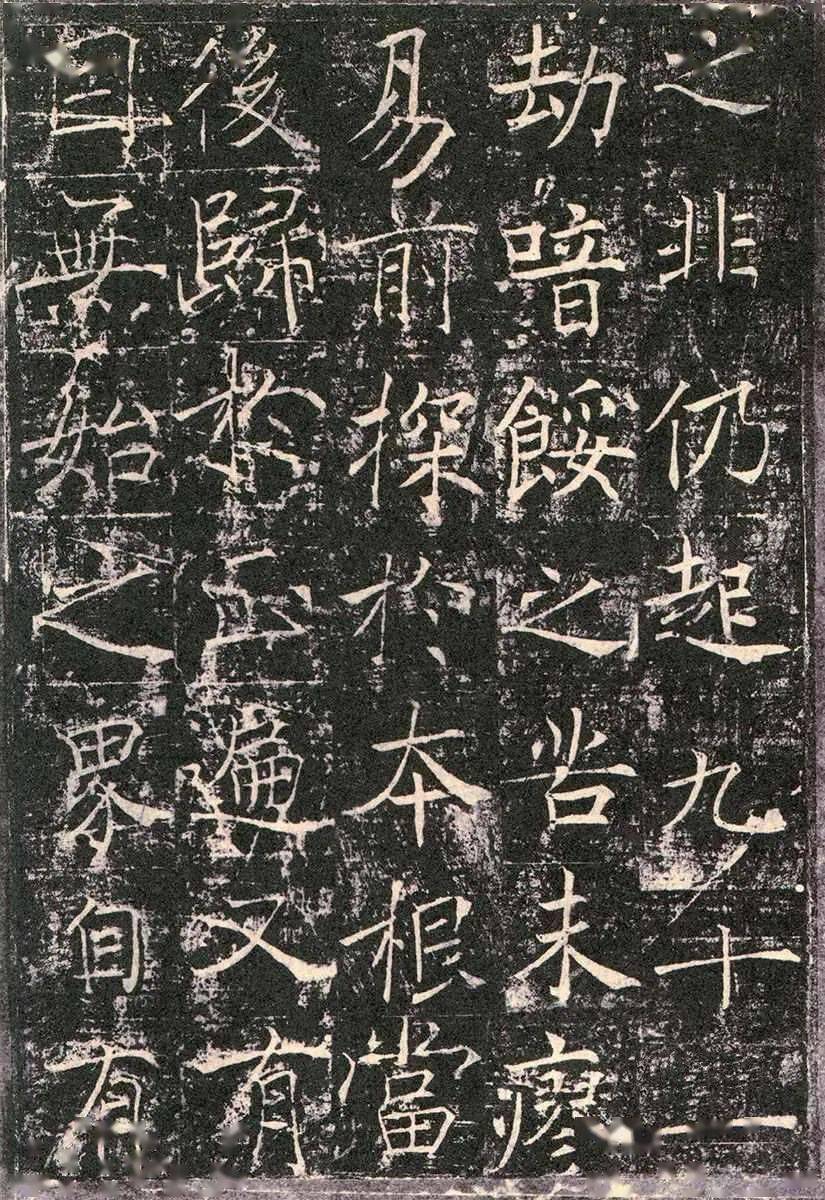 之非仍起九十一
劫喑餒之咎未瘳
易前探於本根當
後歸於正遍又有
無始之界自有